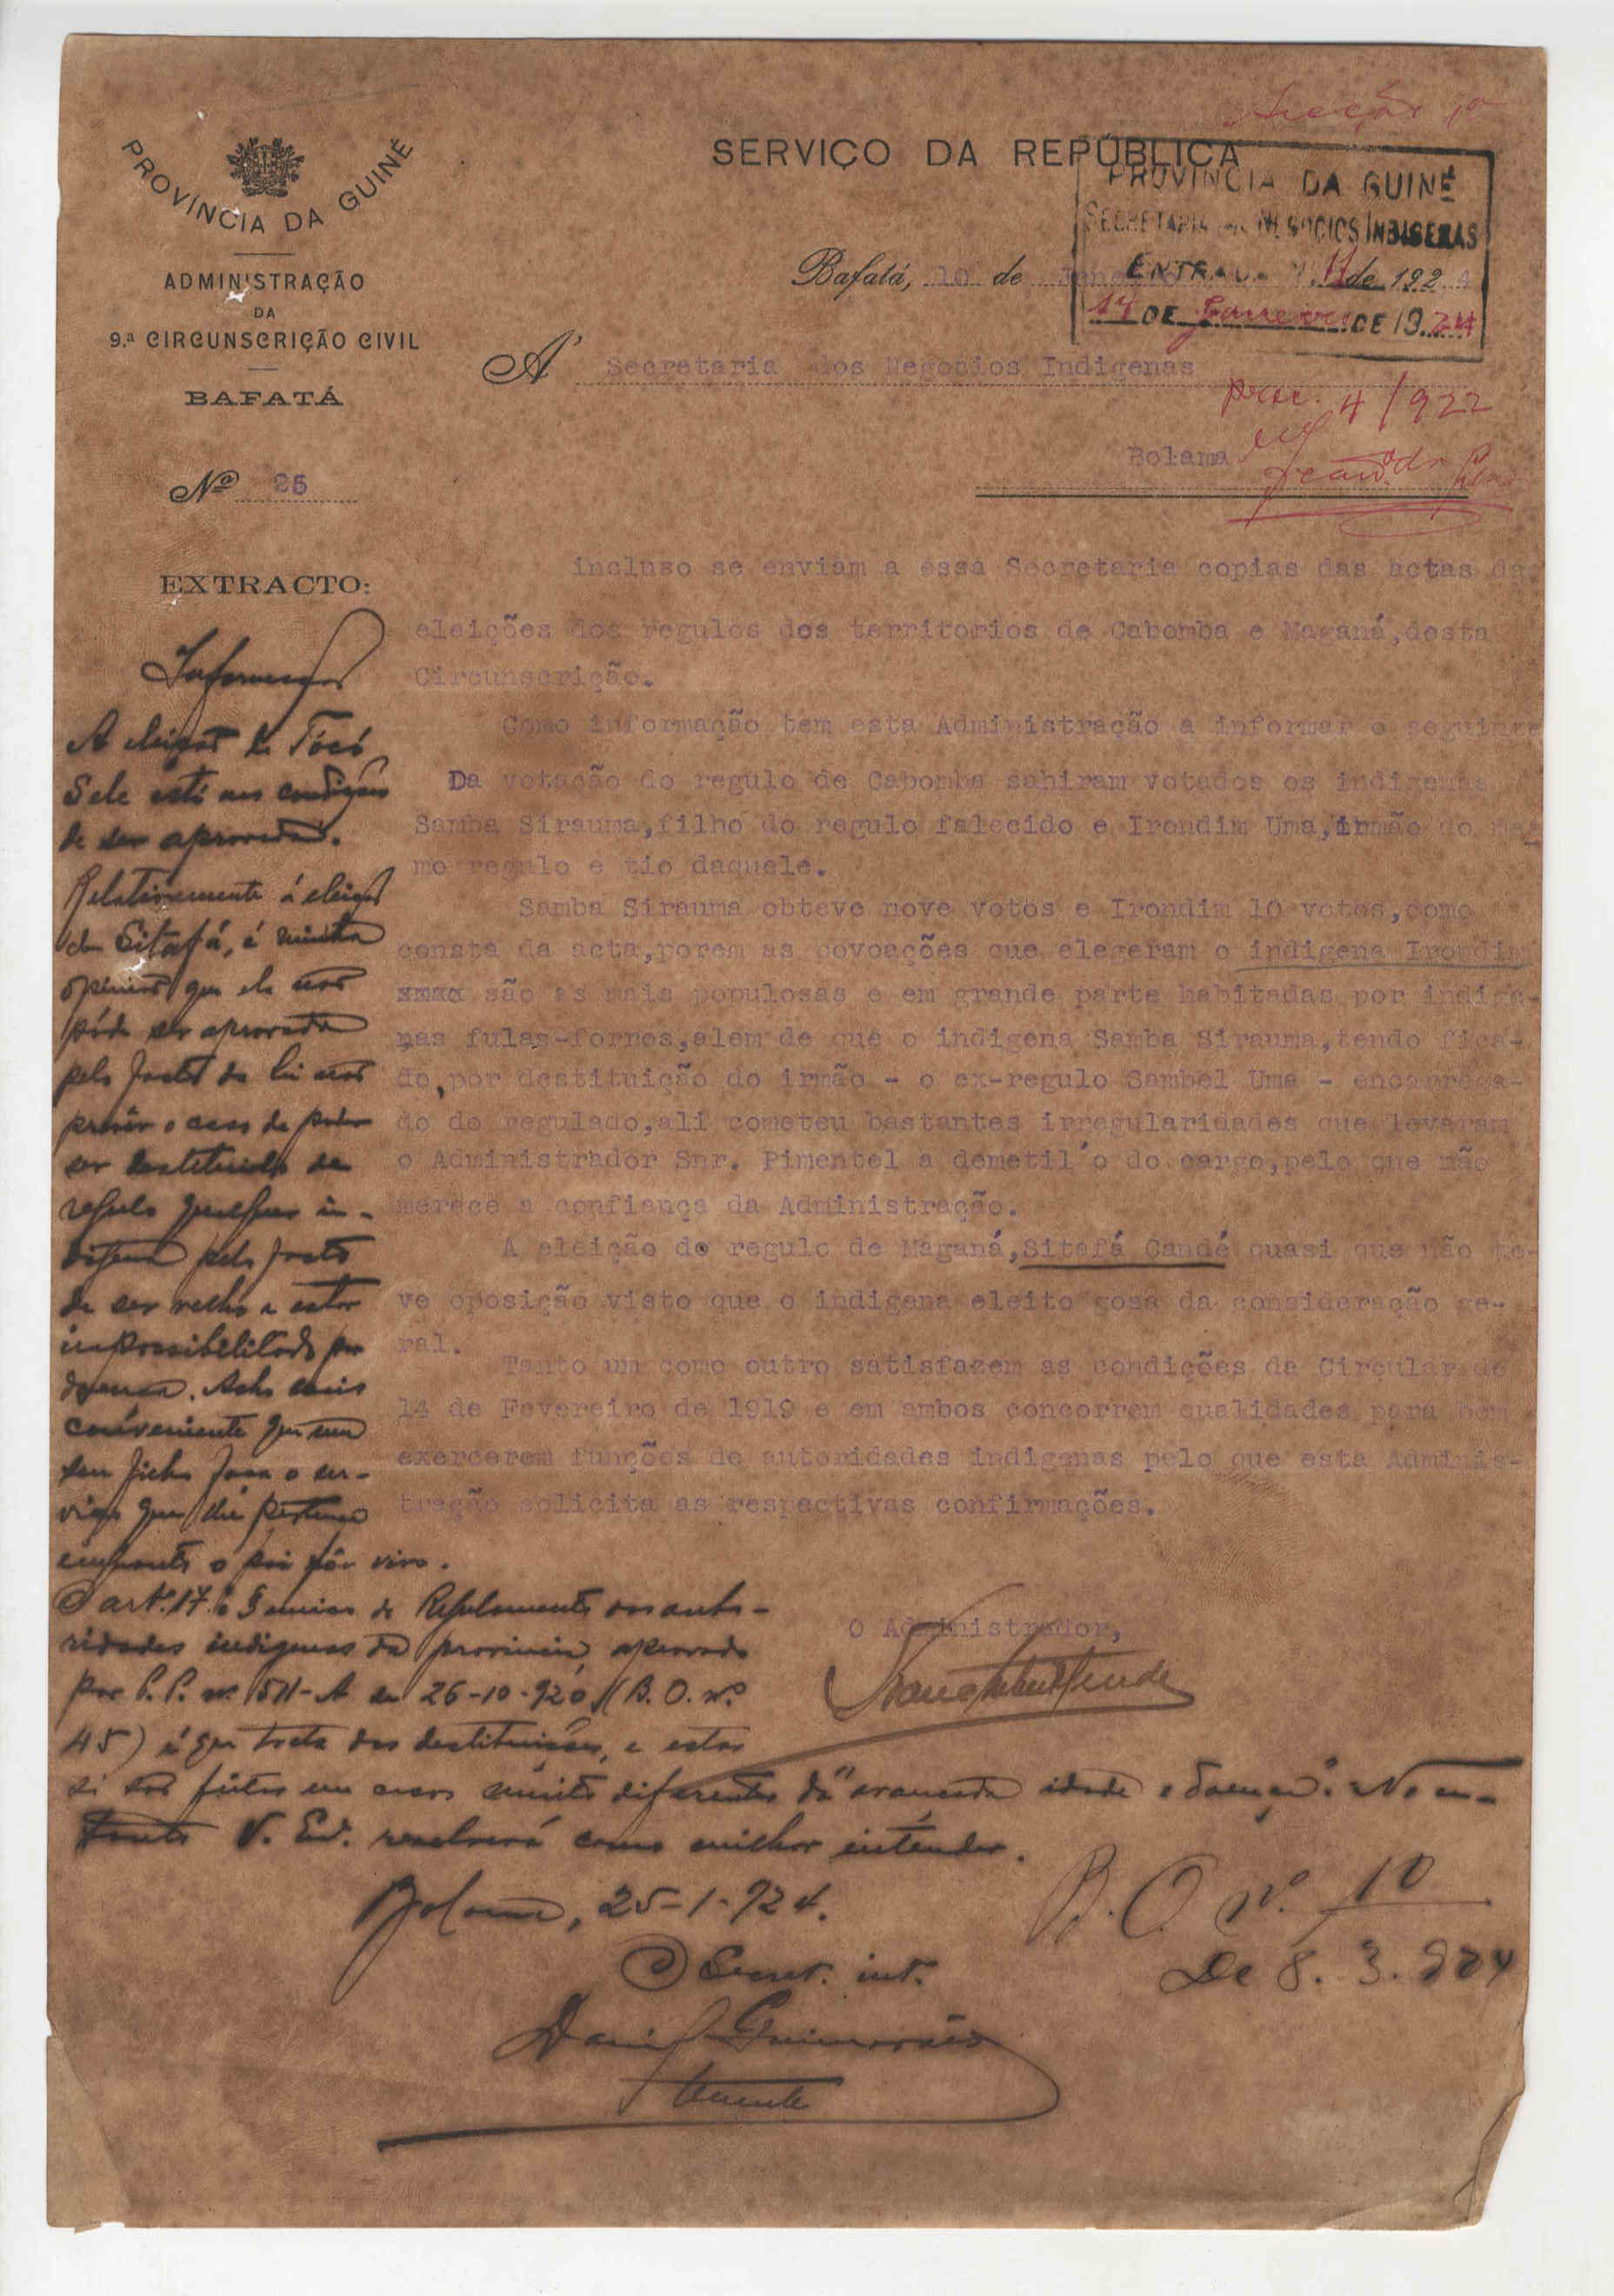 Secção 1ª
PROVÍNCIA DA GUINÉ
SERVIÇO DA REPÚBLICA
PROVINCIA DA GUINÉ
SECRETARIA DOS NEGOCIOS INDIGENAS
ENTRADA Nº 11 de 1924
17 DE Janeiro DE 1924
ADMINISTRAÇÃO
DA
9.ª CIRCUNSCRIÇÃO CIVIL
BAFATÁ
Bafatá, 10 de Janeiro
A' Secretaria dos Negocios Indigenas
proc. 4/922
Bolama
Nº 25
EXTRACTO:
incluso se enviam a essa Secretaria copias das actas das
eleições dos regulos dos territorios de Cabomba e Maganá,desta
Circunscrição.
Como informação tem esta Administração a informar o seguinte
Da votação do regulo de Cabomba sahiram votados os indigenas
Samba Sirauma,filho do regulo falecido e Irondim Uma,irmão do mes-
mo regulo e tio daquele.
Samba Sirauma obteve nove votos e Irondim 10 votos,como
consta da acta,porem as povoações que elegeram o indigena Irondim
são as mais populosas e em grande parte habitadas por indige-
nas fulas-forros,alem de que o indigena Samba Sirauma,tendo fica-
do,por destituição do irmão - o ex-regulo Sambel Uma - encarrega-
do do regulado,ali cometeu bastantes irregularidades que levaram
o Administrador Snr. Pimentel a demetil'o do cargo,pelo que não
merece a confiança da Administração.
A eleição do regulo de Maganá,Sitafá Candé quasi que não te-
ve oposição visto que o indigena eleito gosa da consideração ge-
ral.
Tanto um como outro satisfazem as condições da Circular de
14 de Fevereiro de 1919 e em ambos concorrem qualidades para bem
exercerem funções de autoridades indigenas pelo que esta Adminis-
tração solicita as respectivas confirmações.
O Administrador,
Informação
A eleição de
Sele está nas condições
de ser aprovada.
Relativamente á eleição
de Sitafá, é minha
opinião que ela não
póde ser aprovada
pelo facto da lei não
prevêr o caso de poder
ser destituido de
regulo qualquer in-
digena pelo facto
de ser velho e estar
impossibilitado por
doença. Acho mais
conveniente que um
seu filho faça o ser-
viço que lhe pertença
emquanto o pai fôr vivo.
O artº. 17º e § unico do Regulamento das auto-
ridades indigenas da provincia, aprovado
por P. P. nº 511-A de 26-10-920 (B. O. nº
45) é que trata das destituições, e estas
só são feitas em casos muito diferentes da "avançada idade e doença". No en-
tanto V. Exª. resolverá como milhor intender.
Bolama, 25-1-924.
O Secret. int.
Daniel Guimarães
Tenente
B. O. nº. 10
De 8. 3. 924